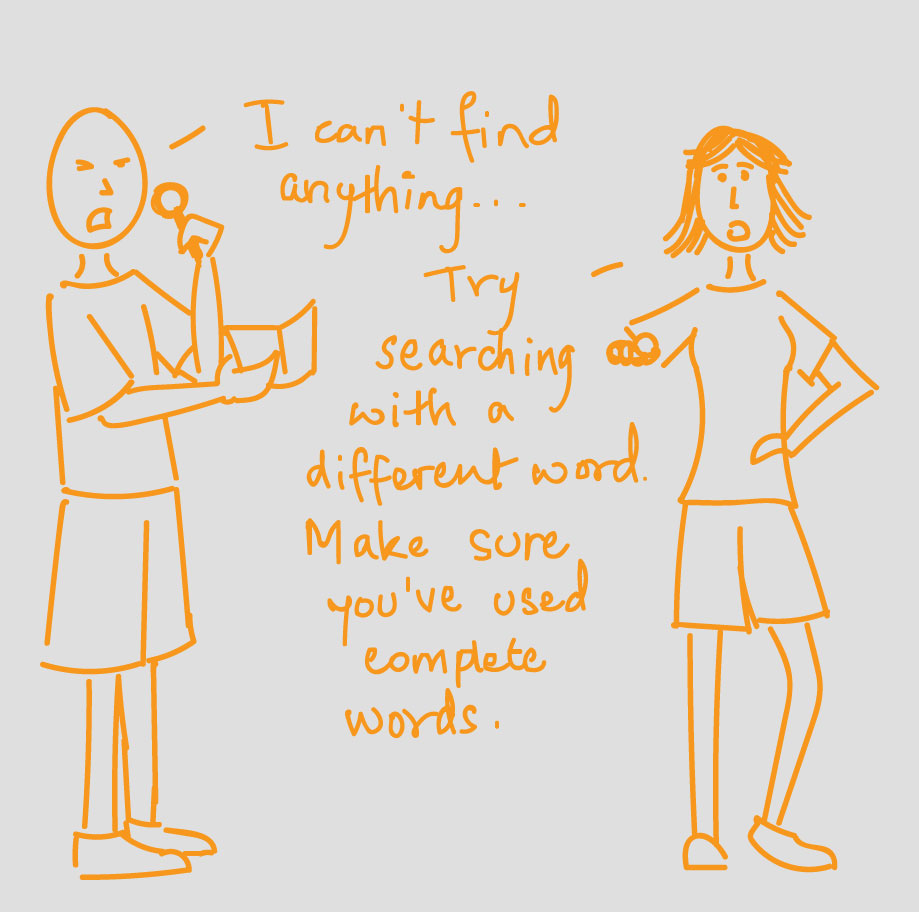 I can't find
anything...
Try
searching
with a
different word.
Make sure
you've used
complete
words.